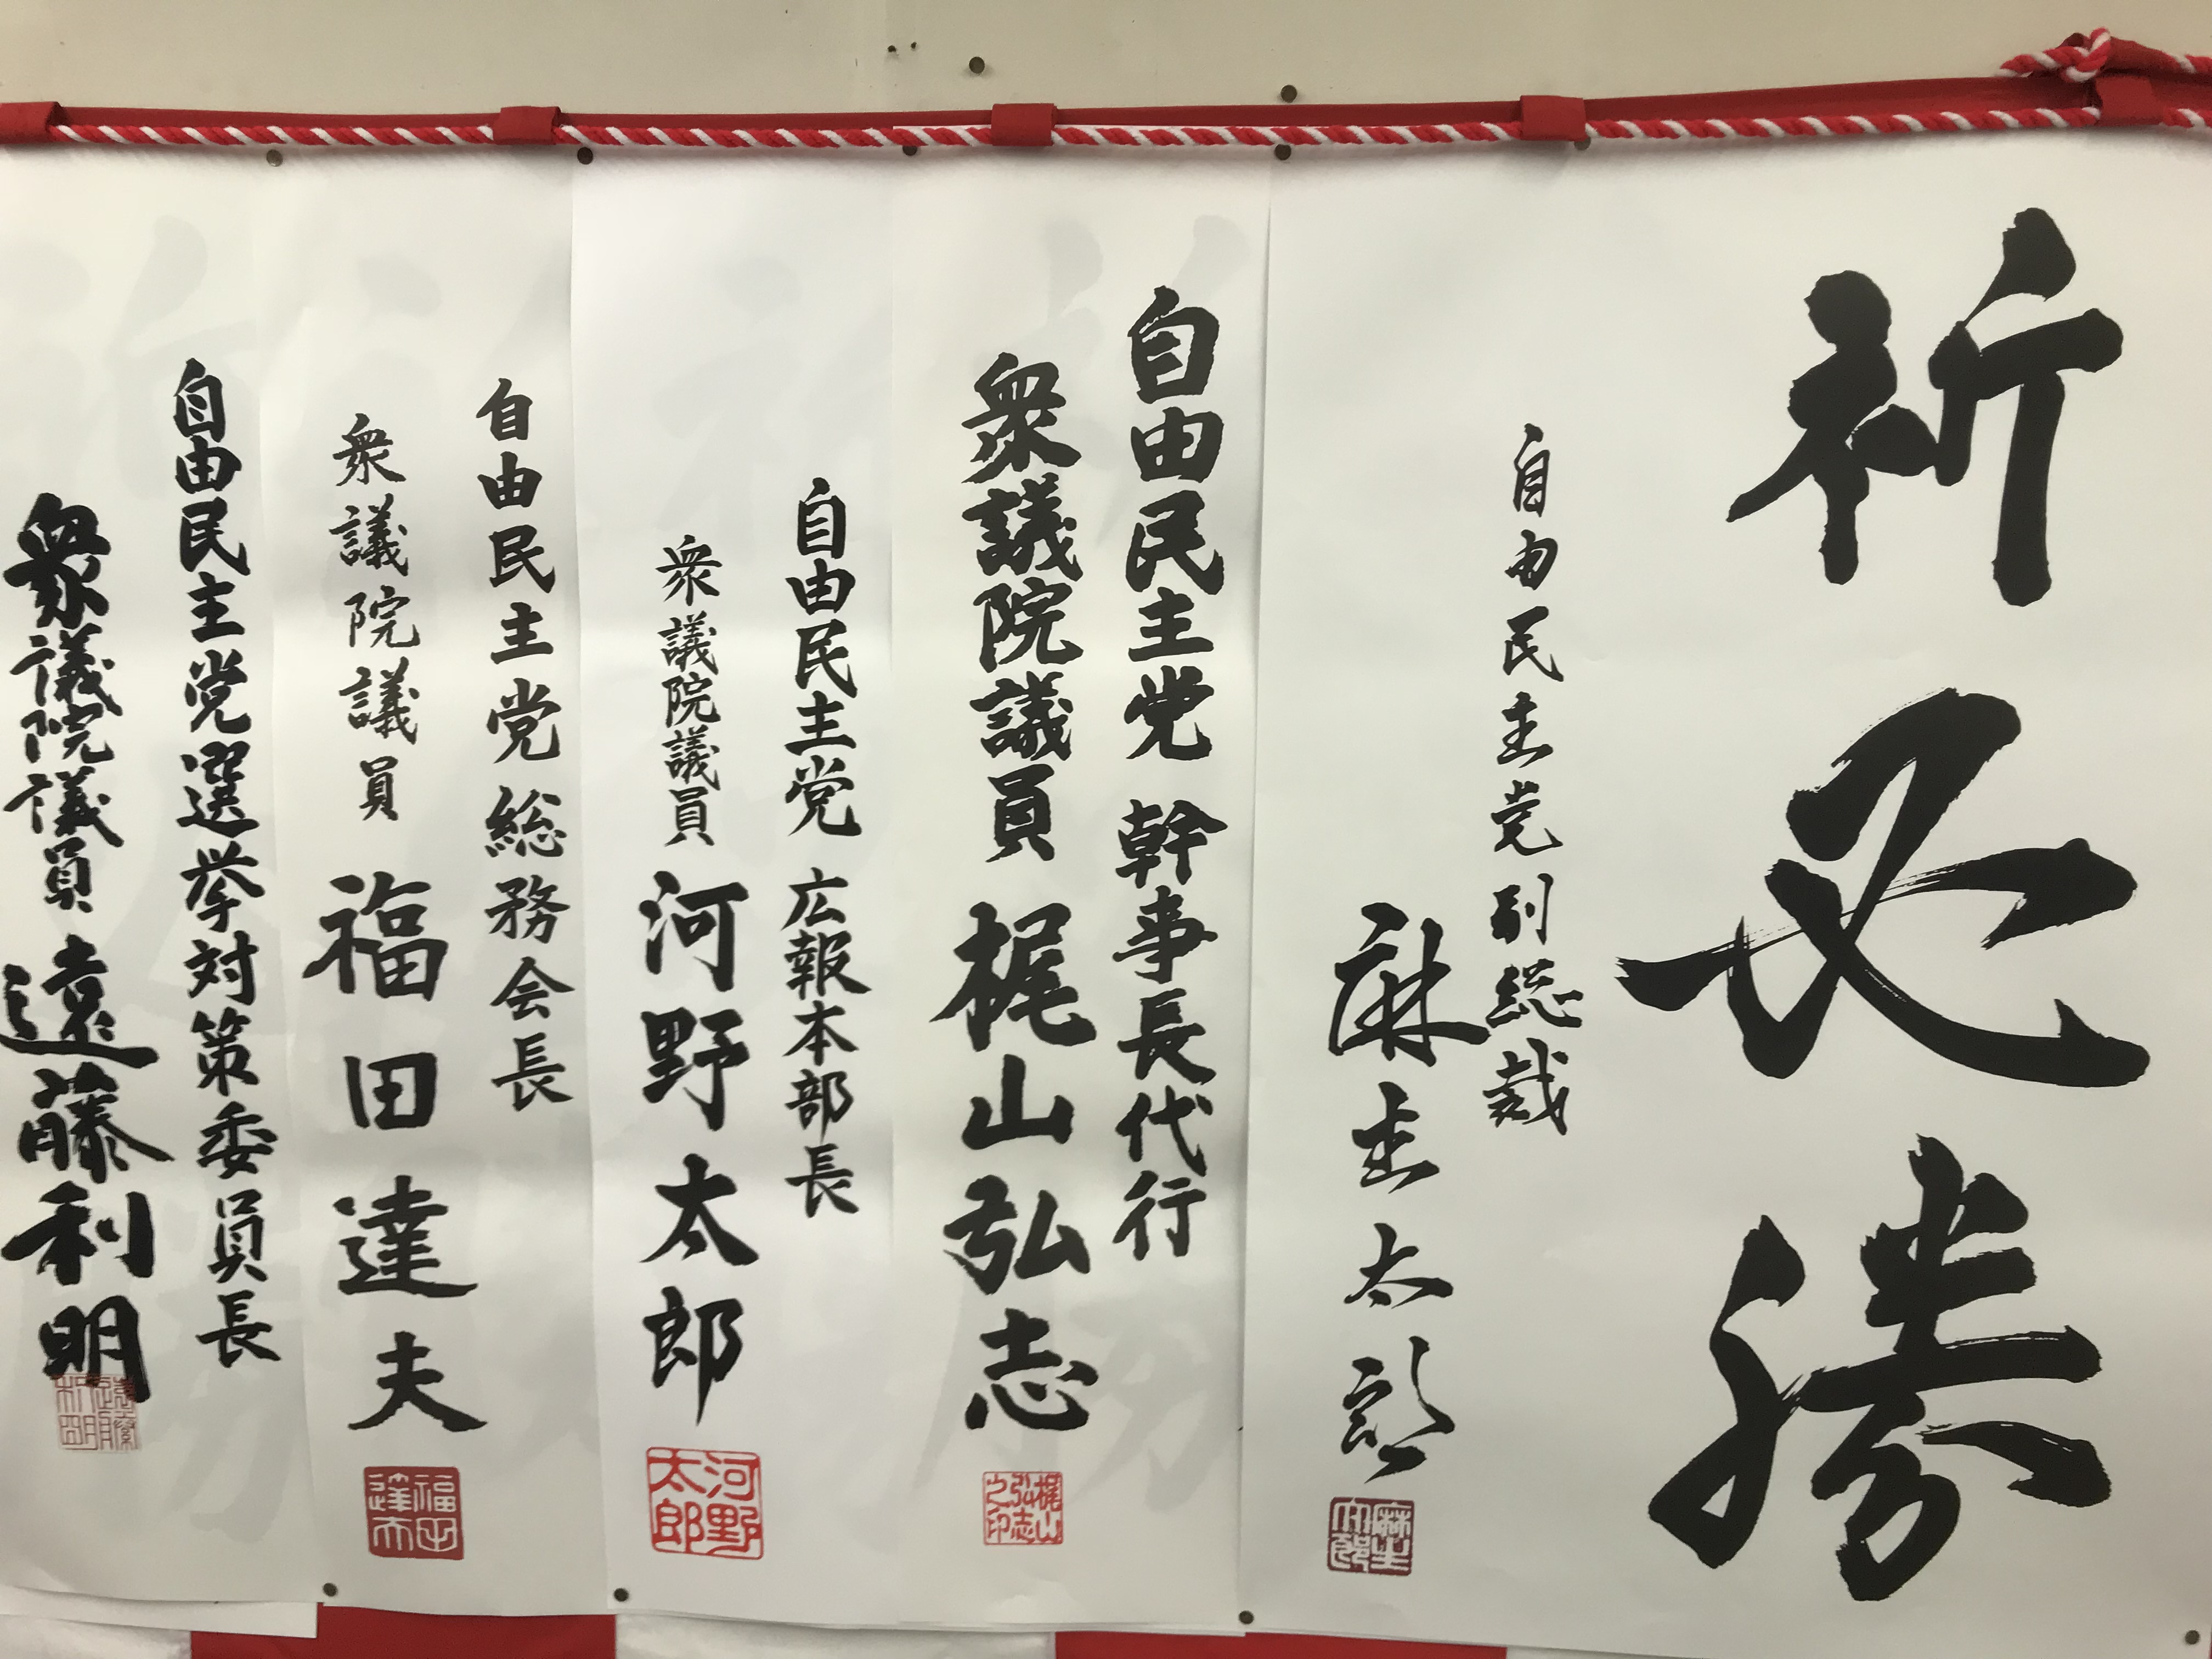 祈必勝
自由民主党副総裁
麻生太郎
麻生太郎
自由民主党 幹事長代行
衆議院議員 梶山弘志
梶山弘志之印
自由民主党 広報本部長
衆議院議員 河野太郎
河野太郎
自由民主党 総務会長
衆議院議員 福田達夫
福田達夫
自由民主党選挙対策委員長
衆議院議員 遠藤利明
遠藤利明